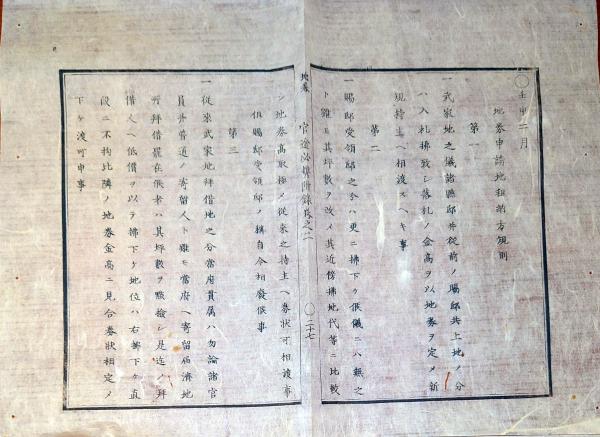 〇壬申二月
地券申請地租納方規則
第一
一武家地之儀諸縣邸并從前ノ賜邸共上地ノ分
ハ入札拂致シ落札ノ金高ヲ以地券ヲ定メ新
規持主ヘ相渡スヘキ事
第二
一賜邸受領邸之分ハ更ニ拂下ケ候儀ニハ無之
ト雖モ其坪數ヲ改メ其近傍拂地代等ニ比較
地券
官途必携附録卷之二
〇二十七
シ地券高取極メ從來之持主ヘ券狀可相渡事
但賜邸受領邸ノ稱自今相廢候事
第三
一從來武家地拜借地之分當府貫屬ハ勿論諸官
員并普通ノ寄留人ト雖モ當府ヘ寄留屆濟地
所拜借罷在候者ハ其坪數ヲ點檢シ是迄ノ拜
借人ヘ低價ヲ以テ拂下ケ地位ハ右拂下ケ直
段ニ不拘比隣ノ地券金高ニ見合券狀相定メ
下ケ渡可申事